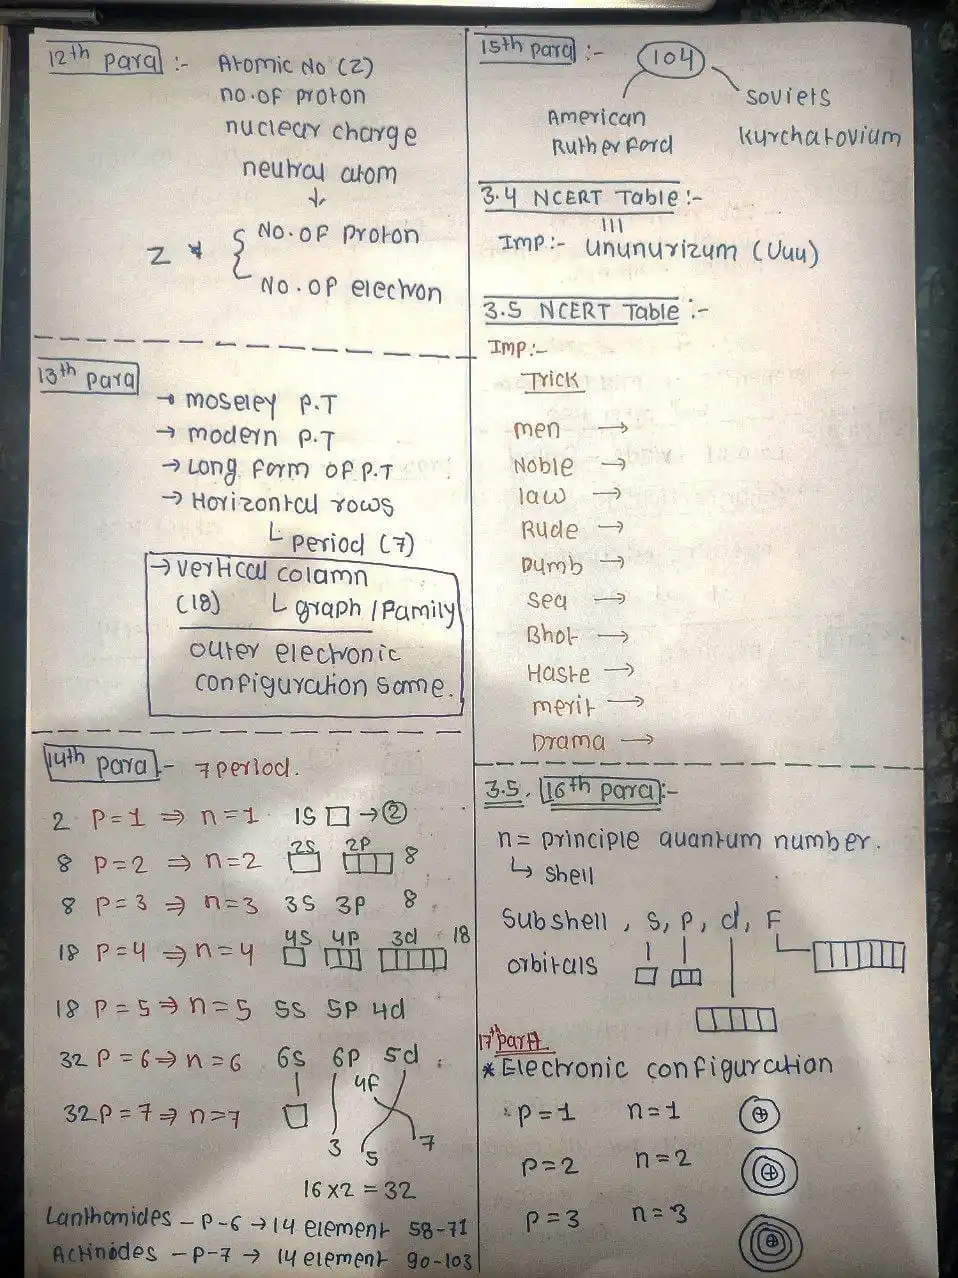 12th para :- Atomic No (Z)
no.of proton
nuclear charge
neutral atom
↓
Z
No.of proton
No.of electron
13th para
→ moseley P.T
→ modern P.T
→ Long form of P.T
→ Horizontal rows
Period (7)
→ vertical colamn
(18) graph / Family
outer electronic
configuration same.
14th para - 7 period.
2 P=1 ⇒ n=1 1S → 2
8 P=2 ⇒ n=2 2S 2P 8
8 P=3 ⇒ n=3 3S 3P 8
18 P=4 ⇒ n=4 4S 4P 3d 18
18 P=5 ⇒ n=5 5S 5P 4d
32 P=6 ⇒ n=6 6S 6P 5d
4f
32 P=7 ⇒ n=7
3 5 7
16 x 2 = 32
Lanthamides - P-6 → 14 element 58-71
Actinodes - P-7 → 14 element 90-103
15th para :- 104
American
Rutherford
Soviets
Kyrchatovium
3.4 NCERT Table :-
111
Imp:- Unununrizum (Uuu)
3.5 NCERT Table :-
Imp:-
Trick
men →
Noble →
law →
Rude →
Dumb →
Sea →
Bhot →
Haste →
merit →
Drama →
3.5. 16th para :-
n = principle quantum number.
↳ shell
Subshell, s, p, d, F
orbitals
17th para
* Electronic configuration
P=1 n=1 ⊕
P=2 n=2 ⊕
P=3 n=3 ⊕